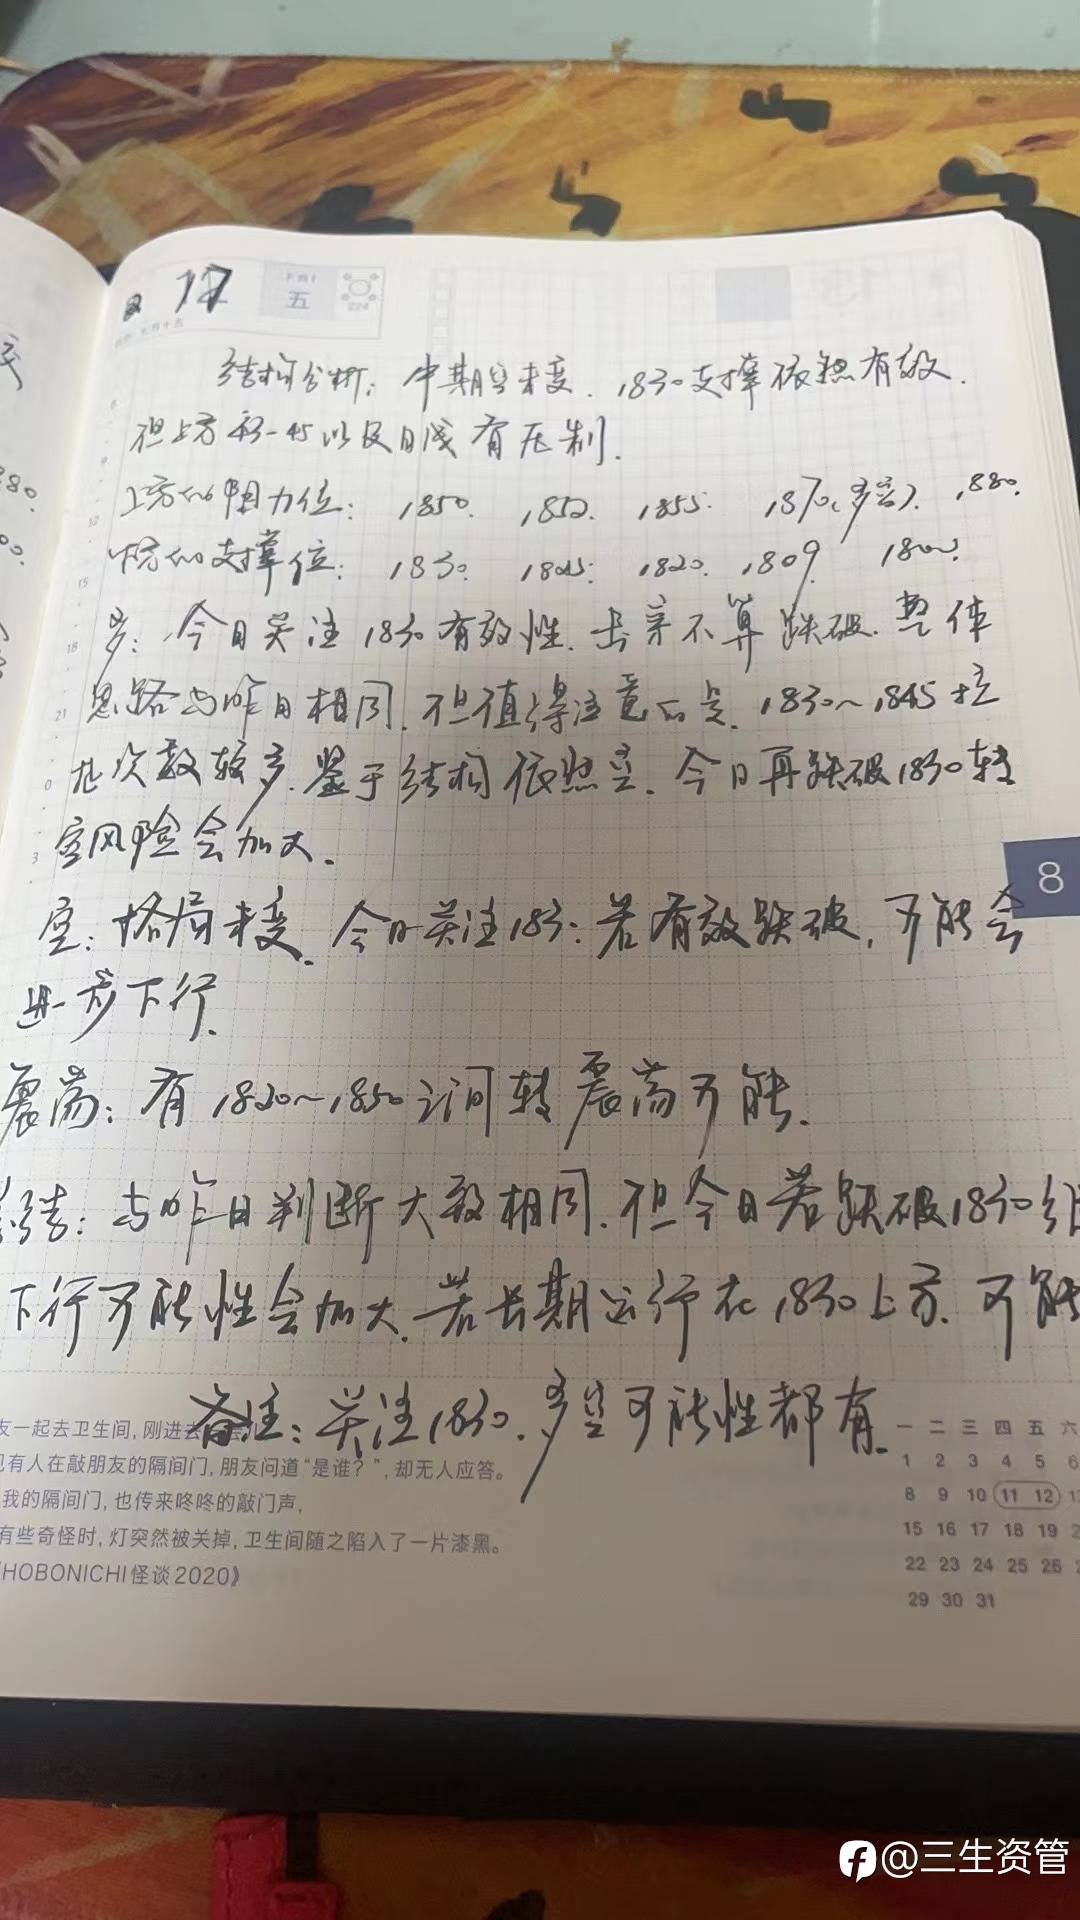 17
FRI
五
224
结构分析：中期空未变．1830支撑依然有效．
但上方43-45以及日线有压制．
上方的阻力位：1850．1852．1855．1870(多空)．1880．
下方的支撑位：1830．1825．1820．1809．1800．
多：今日关注1830有效性．击穿不算跌破．整体
思路与昨日相同．但值得注意的是．1830～1845拉
扯次数较多．鉴于结构依然空．今日再跌破1830转
空风险会加大．
空：格局未变．今日关注1830．若有效跌破，可能会
进一步下行．
震荡：有1820～1850之间转震荡可能．
总结：与昨日判断大致相同．但今日若跌破1830
下行可能性会加大．若长期运行在1830上方．可能
备注：关注1830．多空可能性都有．
8
友一起去卫生间，刚进去
有人在敲朋友的隔间门，朋友问道“是谁？”，却无人应答。
我的隔间门，也传来咚咚的敲门声，
有些奇怪时，灯突然被关掉，卫生间随之陷入了一片漆黑。
HOBONICHI怪谈2020》
一 二 三 四 五 六
1 2 3 4 5 6
8 9 10 11 12
15 16 17 18 19
22 23 24 25 26
29 30 31
@三生资管